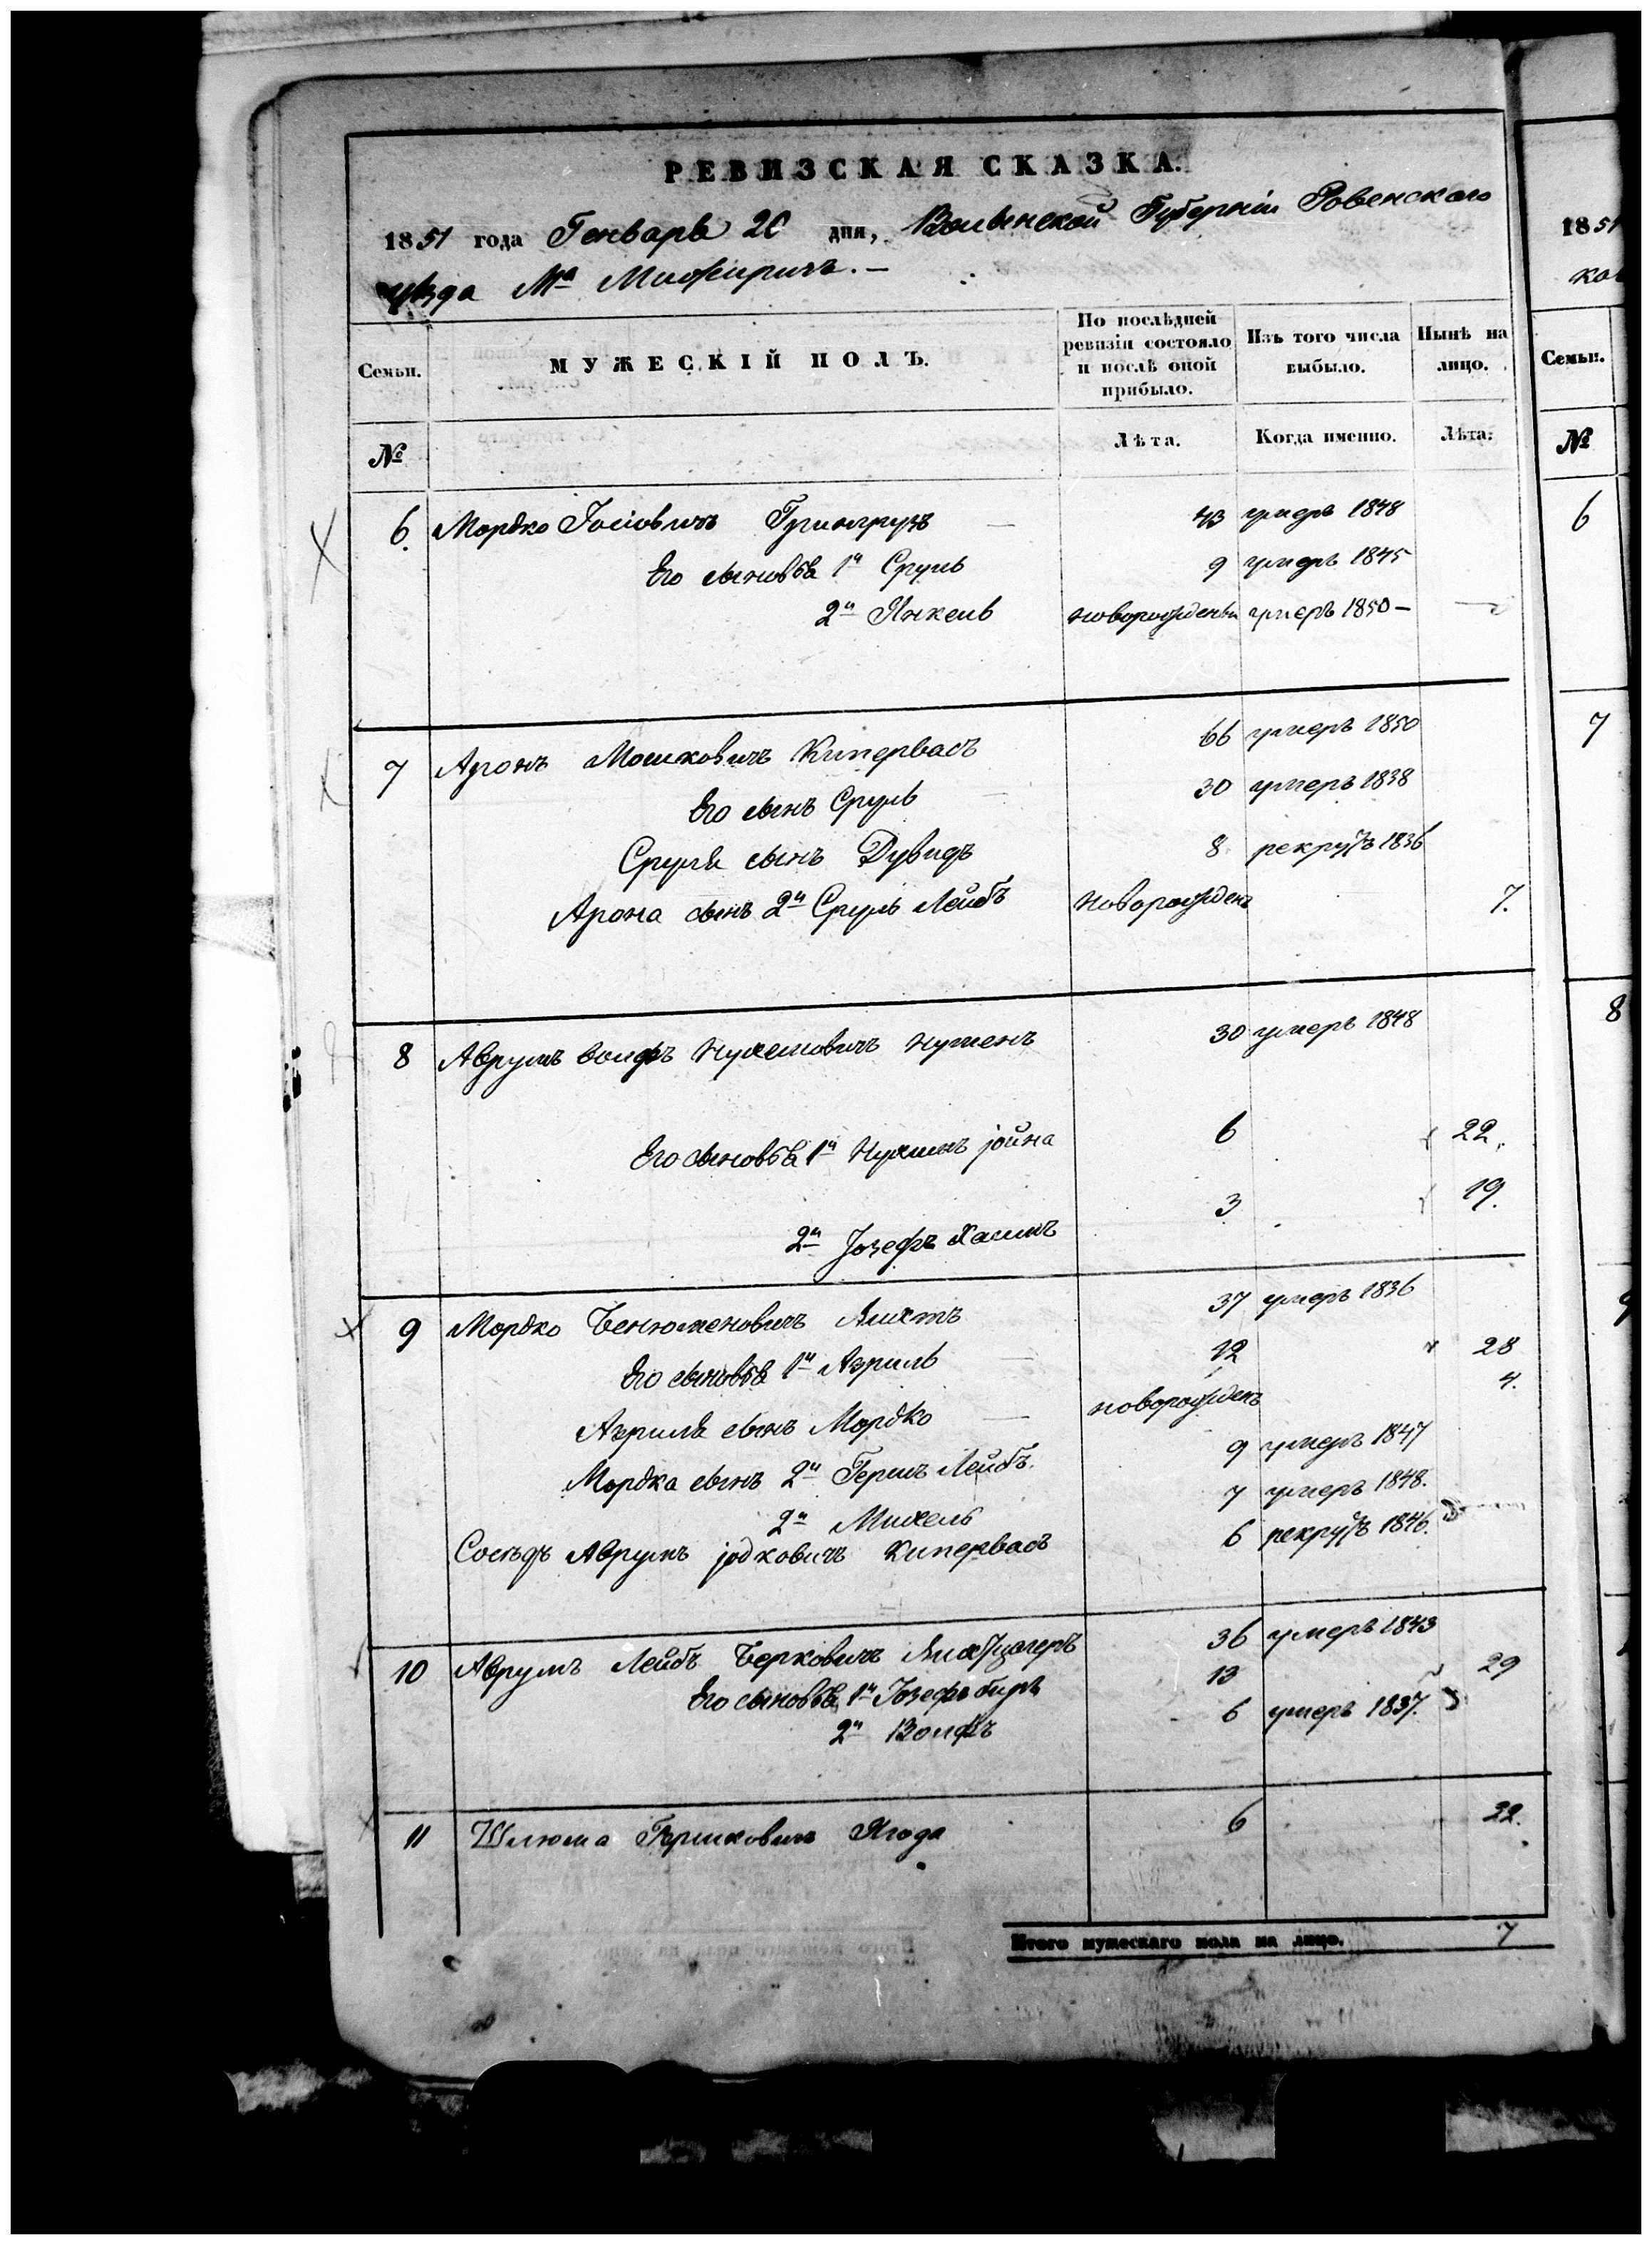 РЕВИЗСКАЯ СКАЗКА.
1851 года Генваря 20 дня, Волынской Губерніи Ровенского
уѣзда Мª Межирича. —
Семьи. МУЖЕСКІЙ ПОЛЪ. По послѣдней ревизіи состояло и послѣ оной прибыло. Изъ того числа выбыло. Нынѣ на лицо.
№ Лѣта. Когда именно. Лѣта.
6. Мордко Іосіовичъ 43 умеръ 1848
Его сыновья 1й Сруль 9 умеръ 1845
2й Янкель новорожденъ умеръ 1850 —
7 Аронъ Мошковичъ Кипервасъ 66 умеръ 1850
Его сынъ Сруль 30 умеръ 1838
Сруля сынъ Дувидъ 8 рекрутъ 1836
Арона сынъ 2й Сруль Лейбъ новорожденъ 7.
8 Аврумъ Волфъ Нухимовичъ 30 умеръ 1848
Его сыновья 1й Нухимъ Іойна 6 22.
2й Іозефъ Хаимъ 3 19.
9 Мордко Бенюменовичъ Лихтъ 37 умеръ 1836
Его сыновья 1й Азриль 12 28
Азриля сынъ Мордко новорожденъ 4.
Мордка сынъ 2й Гершъ Лейбъ 9 умеръ 1847
2й Михель 7 умеръ 1848.
Сосѣдъ Аврумъ Іодковичъ Кипервасъ 6 рекрутъ 1846.
10 Аврумъ Лейбъ Берковичъ 36 умеръ 1843
Его сыновья 1й Іозефъ Беръ 13 29
2й Волфъ 6 умеръ 1837.
11 Шлюма Гершковичъ Ягода 6 22.
Итого мужескаго пола на лицо. 7
1851
Семьи.
№
6
7
8